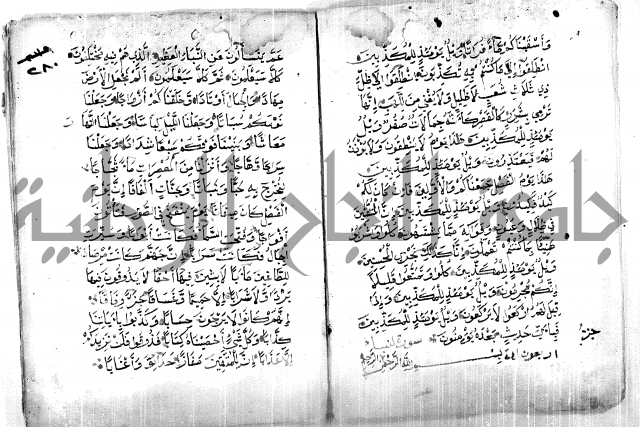 وَأَسْقَيْنَاكُمْ مَاءً فُرَاتًا وَيْلٌ يَوْمَئِذٍ لِلْمُكَذِّبِينَ
انْطَلِقُوا إِلَى مَا كُنْتُمْ بِهِ تُكَذِّبُونَ انْطَلِقُوا إِلَى ظِلٍّ
ذِي ثَلَاثِ شُعَبٍ لَا ظَلِيلٍ وَلَا يُغْنِي مِنَ اللَّهَبِ إِنَّهَا
تَرْمِي بِشَرَرٍ كَالْقَصْرِ كَأَنَّهُ جِمَالَاتٌ صُفْرٌ وَيْلٌ
يَوْمَئِذٍ لِلْمُكَذِّبِينَ هَذَا يَوْمُ لَا يَنْطِقُونَ وَلَا يُؤْذَنُ
لَهُمْ فَيَعْتَذِرُونَ وَيْلٌ يَوْمَئِذٍ لِلْمُكَذِّبِينَ
هَذَا يَوْمُ الْفَصْلِ جَمَعْنَاكُمْ وَالْأَوَّلِينَ فَإِنْ كَانَ لَكُمْ
كَيْدٌ فَكِيدُونِ وَيْلٌ يَوْمَئِذٍ لِلْمُكَذِّبِينَ إِنَّ الْمُتَّقِينَ
فِي ظِلَالٍ وَعُيُونٍ وَفَوَاكِهَ مِمَّا يَشْتَهُونَ كُلُوا وَاشْرَبُوا
هَنِيئًا بِمَا كُنْتُمْ تَعْمَلُونَ إِنَّا كَذَلِكَ نَجْزِي الْمُحْسِنِينَ
وَيْلٌ يَوْمَئِذٍ لِلْمُكَذِّبِينَ كُلُوا وَتَمَتَّعُوا قَلِيلًا
إِنَّكُمْ مُجْرِمُونَ وَيْلٌ يَوْمَئِذٍ لِلْمُكَذِّبِينَ وَإِذَا
قِيلَ لَهُمُ ارْكَعُوا لَا يَرْكَعُونَ وَيْلٌ يَوْمَئِذٍ لِلْمُكَذِّبِينَ
فَبِأَيِّ حَدِيثٍ بَعْدَهُ يُؤْمِنُونَ سورة
اربعون اية بسم الله الرحمن الرحيم
جزء
عَمَّ يَتَسَاءَلُونَ عَنِ النَّبَإِ الْعَظِيمِ الَّذِي هُمْ فِيهِ مُخْتَلِفُونَ
كَلَّا سَيَعْلَمُونَ ثُمَّ كَلَّا سَيَعْلَمُونَ أَلَمْ نَجْعَلِ الْأَرْضَ
مِهَادًا وَالْجِبَالَ أَوْتَادًا وَخَلَقْنَاكُمْ أَزْوَاجًا وَجَعَلْنَا
نَوْمَكُمْ سُبَاتًا وَجَعَلْنَا اللَّيْلَ لِبَاسًا وَجَعَلْنَا النَّهَارَ
مَعَاشًا وَبَنَيْنَا فَوْقَكُمْ سَبْعًا شِدَادًا وَجَعَلْنَا
سِرَاجًا وَهَّاجًا وَأَنْزَلْنَا مِنَ الْمُعْصِرَاتِ مَاءً ثَجَّاجًا
لِنُخْرِجَ بِهِ حَبًّا وَنَبَاتًا وَجَنَّاتٍ أَلْفَافًا إِنَّ يَوْمَ
الْفَصْلِ كَانَ مِيقَاتًا يَوْمَ يُنْفَخُ فِي الصُّورِ فَتَأْتُونَ
أَفْوَاجًا وَفُتِحَتِ السَّمَاءُ فَكَانَتْ أَبْوَابًا وَسُيِّرَتِ
الْجِبَالُ فَكَانَتْ سَرَابًا إِنَّ جَهَنَّمَ كَانَتْ مِرْصَادًا
لِلطَّاغِينَ مَآبًا لَابِثِينَ فِيهَا أَحْقَابًا لَا يَذُوقُونَ فِيهَا
بَرْدًا وَلَا شَرَابًا إِلَّا حَمِيمًا وَغَسَّاقًا جَزَاءً وِفَاقًا
إِنَّهُمْ كَانُوا لَا يَرْجُونَ حِسَابًا وَكَذَّبُوا بِآيَاتِنَا
كِذَّابًا وَكُلَّ شَيْءٍ أَحْصَيْنَاهُ كِتَابًا فَذُوقُوا فَلَنْ نَزِيدَكُمْ
إِلَّا عَذَابًا إِنَّ لِلْمُتَّقِينَ مَفَازًا حَدَائِقَ وَأَعْنَابًا
جامعة النجاح الوطنية